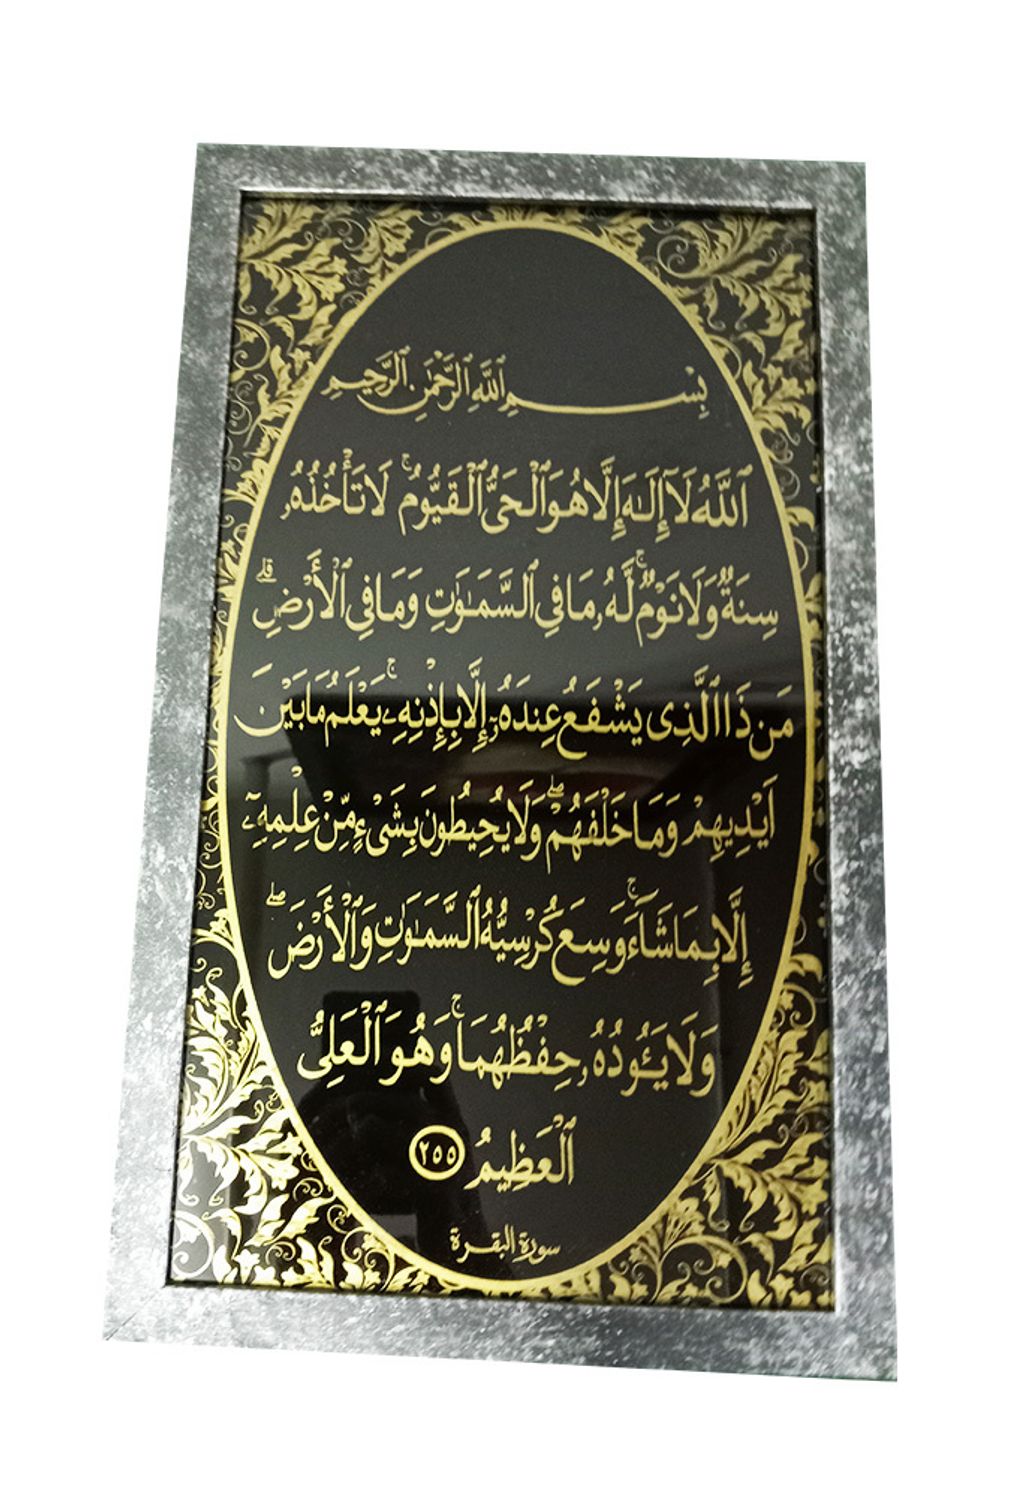 بِسْمِ ٱللَّهِ ٱلرَّحْمَٰنِ ٱلرَّحِيمِ
ٱللَّهُ لَآ إِلَـٰهَ إِلَّا هُوَ ٱلْحَىُّ ٱلْقَيُّومُ ۚ لَا تَأْخُذُهُۥ
سِنَةٌ وَلَا نَوْمٌ ۚ لَّهُۥ مَا فِى ٱلسَّمَـٰوَٰتِ وَمَا فِى ٱلْأَرْضِ ۗ
مَن ذَا ٱلَّذِى يَشْفَعُ عِندَهُۥٓ إِلَّا بِإِذْنِهِۦ ۚ يَعْلَمُ مَا بَيْنَ
أَيْدِيهِمْ وَمَا خَلْفَهُمْ ۖ وَلَا يُحِيطُونَ بِشَىْءٍ مِّنْ عِلْمِهِۦٓ
إِلَّا بِمَا شَآءَ ۚ وَسِعَ كُرْسِيُّهُ ٱلسَّمَـٰوَٰتِ وَٱلْأَرْضَ ۖ
وَلَا يَـُٔودُهُۥ حِفْظُهُمَا ۚ وَهُوَ ٱلْعَلِىُّ
ٱلْعَظِيمُ ٢٥٥
سورة البقرة